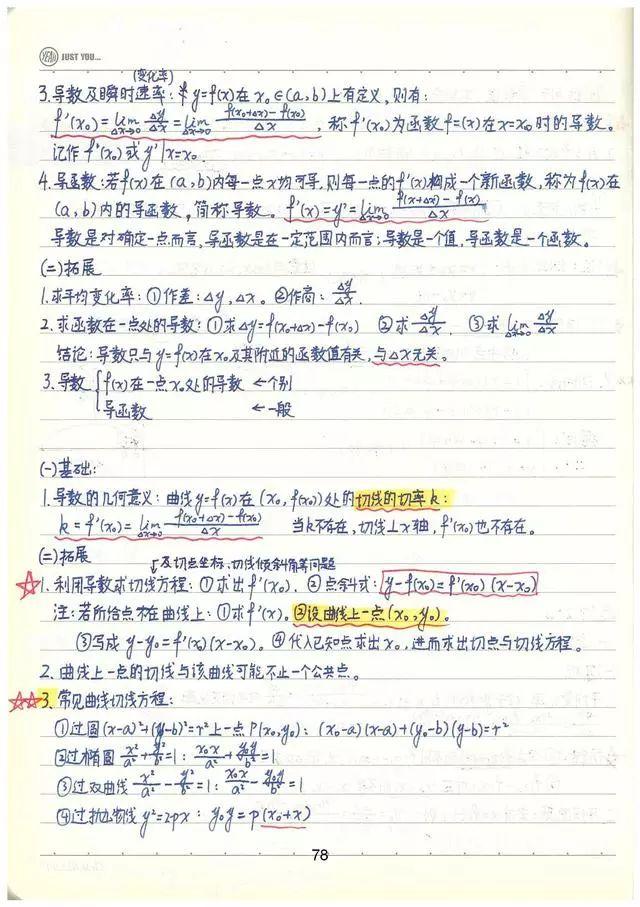 YEAH JUST YOU...
(变化率)
3.导数及瞬时速率:若y=f(x)在x₀∈(a,b)上有定义,则有:
f'(x₀)=lim Δx→0 Δy/Δx=lim Δx→0 (f(x₀+Δx)-f(x₀))/Δx,称f'(x₀)为函数f=(x)在x=x₀时的导数。
记作f'(x₀)或y'|x=x₀.
4.导函数:若f(x)在(a,b)内每一点x均可导,则每一点的f'(x)构成一个新函数,称为f(x)在
(a,b)内的导函数,简称导数。f'(x)=y'=lim Δx→0 (f(x+Δx)-f(x))/Δx
导数是对确定一点而言,导函数是在一定范围内而言;导数是一个值,导函数是一个函数。
(二)拓展
1.求平均变化率:①作差:Δy,Δx。②作商:Δy/Δx.
2.求函数在一点处的导数:①求Δy=f(x₀+Δx)-f(x₀) ②求Δy/Δx. ③求lim Δx→0 Δy/Δx
结论:导数只与y=f(x)在x₀及其附近的函数值有关,与Δx无关。
3.导数{f(x)在一点x₀处的导数 ←个别
导函数 ←一般
(一)基础:
1.导数的几何意义:曲线y=f(x)在(x₀,f(x₀))处的切线的切率k:
k=f'(x₀)=lim Δx→0 (f(x₀+Δx)-f(x₀))/Δx 当k不存在,切线⊥x轴,f'(x₀)也不存在。
(二)拓展
及切点坐标、切线倾斜角等问题
☆1.利用导数求切线方程:①求出f'(x₀). ②点斜式:y-f(x₀)=f'(x₀)(x-x₀)
注:若所给点不在曲线上:①求f'(x)。②设曲线上一点(x₀,y₀)。
③写成y-y₀=f'(x₀)(x-x₀)。④代入已知点求出x₀,进而求出切点与切线方程。
2.曲线上一点的切线与该曲线可能不止一个公共点。
☆☆3.常见曲线切线方程:
①过圆(x-a)²+(y-b)²=r²上一点P(x₀,y₀):(x₀-a)(x-a)+(y₀-b)(y-b)=r²
②过椭圆x²/a²+y²/b²=1:x₀x/a²+y₀y/b²=1
③过双曲线x²/a²-y²/b²=1:x₀x/a²-y₀y/b²=1
④过抛物线y²=2px:y₀y=p(x₀+x)
78